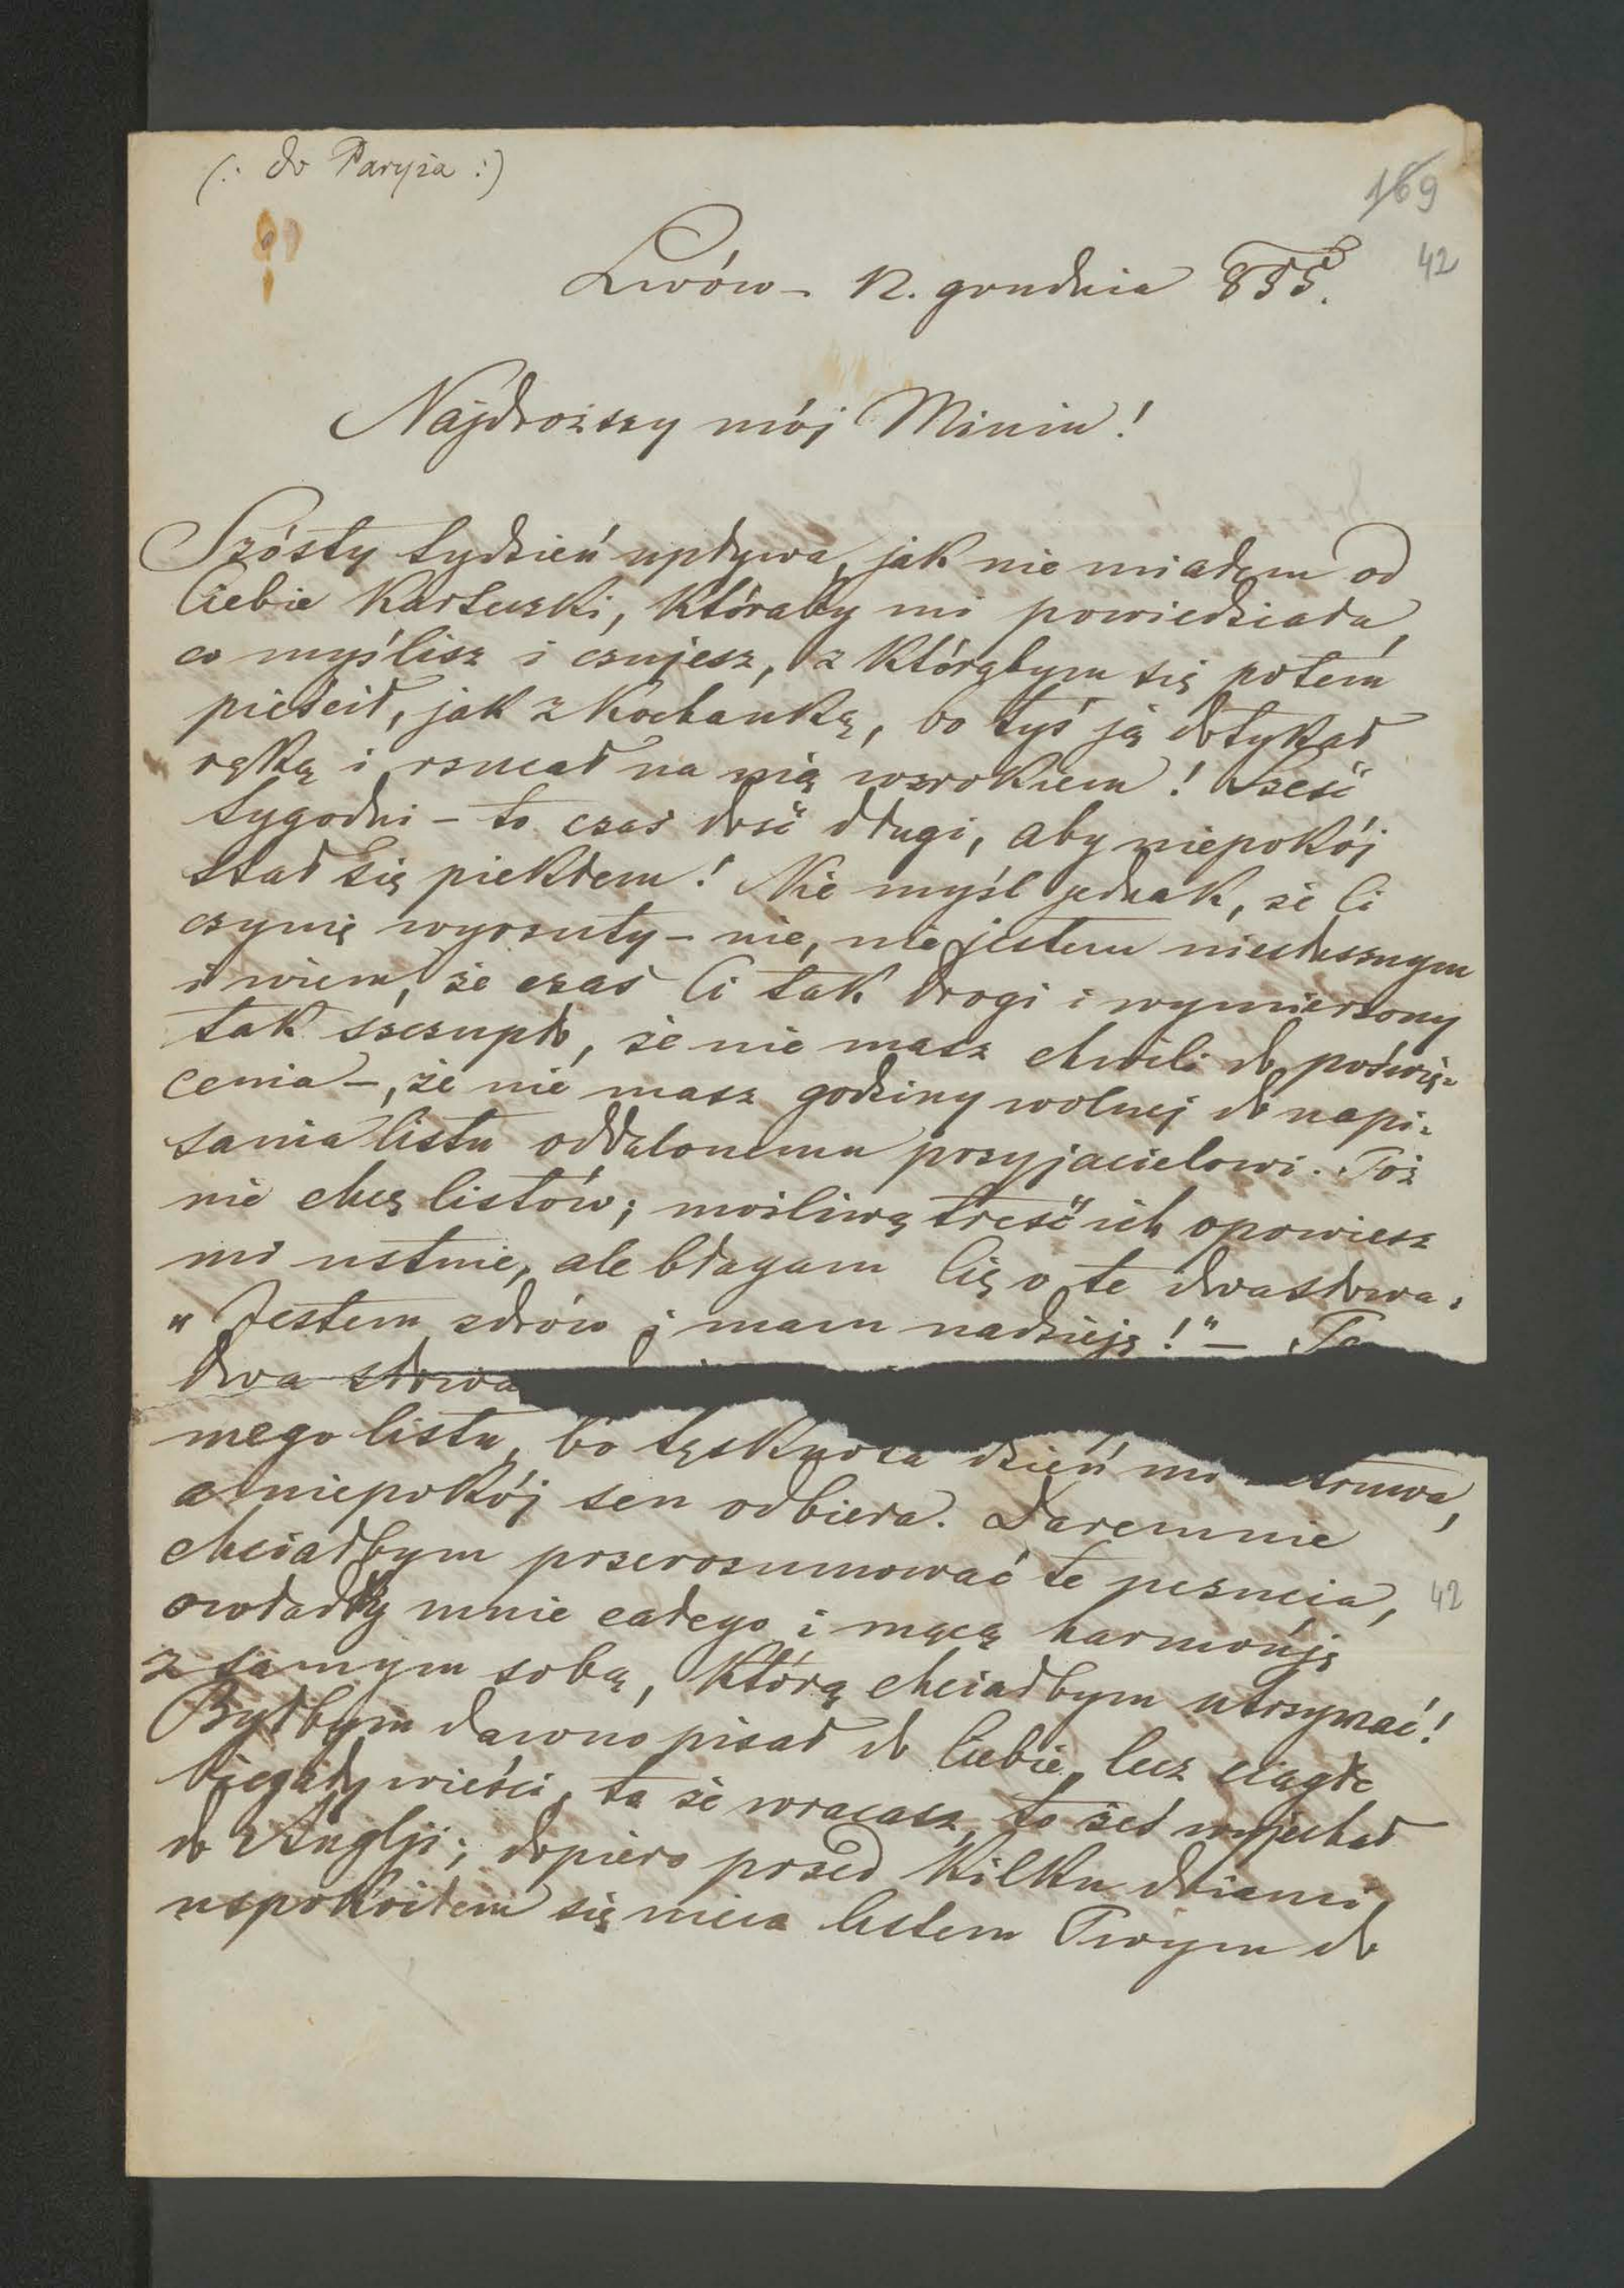 (: do Paryża :)
169
42
Lwów – 12. grudnia 855.
Najdroższy mój Miniu!
Szósty tydzień upływa, jak nie miałem od
Ciebie karteczki, któraby mi powiedziała,
co myślisz i czujesz, z którąbym się potém
pieścił, jak z kochanką, bo tyś ją dotykał
ręką i rzucał na nią wzrokiem! Sześć
tygodni – to czas dość długi, aby niepokój
stał się piekłem! Nie myśl jednak, że Ci
czynię wyrzuty – nie, nie jestem niesłusznym
i wiem, że czas Ci tak drogi i wymierzony
tak szczupło, że nie masz chwili do poświę-
cenia –, że nie masz godziny wolnej do napi-
sania listu oddalonemu przyjacielowi. Toż
nie chcę listów; możliwą treść ich opowiesz
mi ustnie, ale błagam Cię o te dwa słowa:
„Jestem zdrów i mam nadzieję!" – Te
dwa słowa
mego listu, bo tęsknota dzień mi
a niepokój sen odbiera. Daremnie
chciałbym przerozumować te uczucia,
42
owładły mnie całego i mącą harmonję
z samym sobą, którą chciałbym utrzymać!
Byłbym dawno pisał do Ciebie, lecz ciągłe
biegały wieści, to że wracasz, to żeś wyjechał
do Anglji; dopiero przed kilku dniami
uspokoiłem się nieco listem Twym do